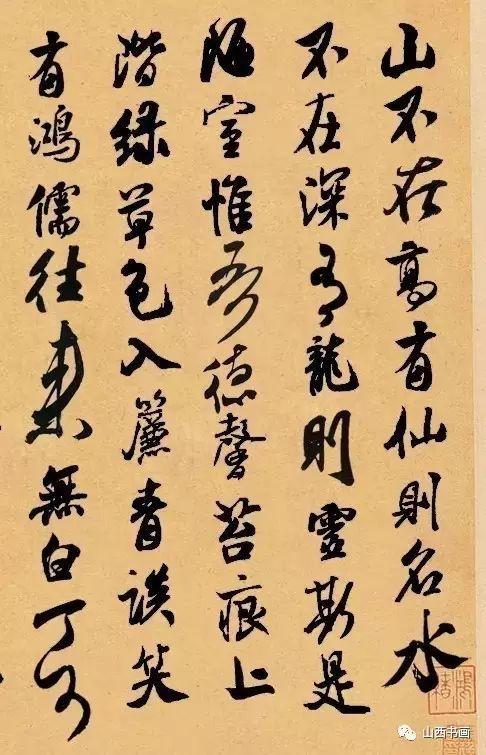 山不在高有仙則名水
不在深有龍則靈斯是
陋室惟吾德馨苔痕上
階綠草色入簾青談笑
有鴻儒往來無白丁可
山西书画